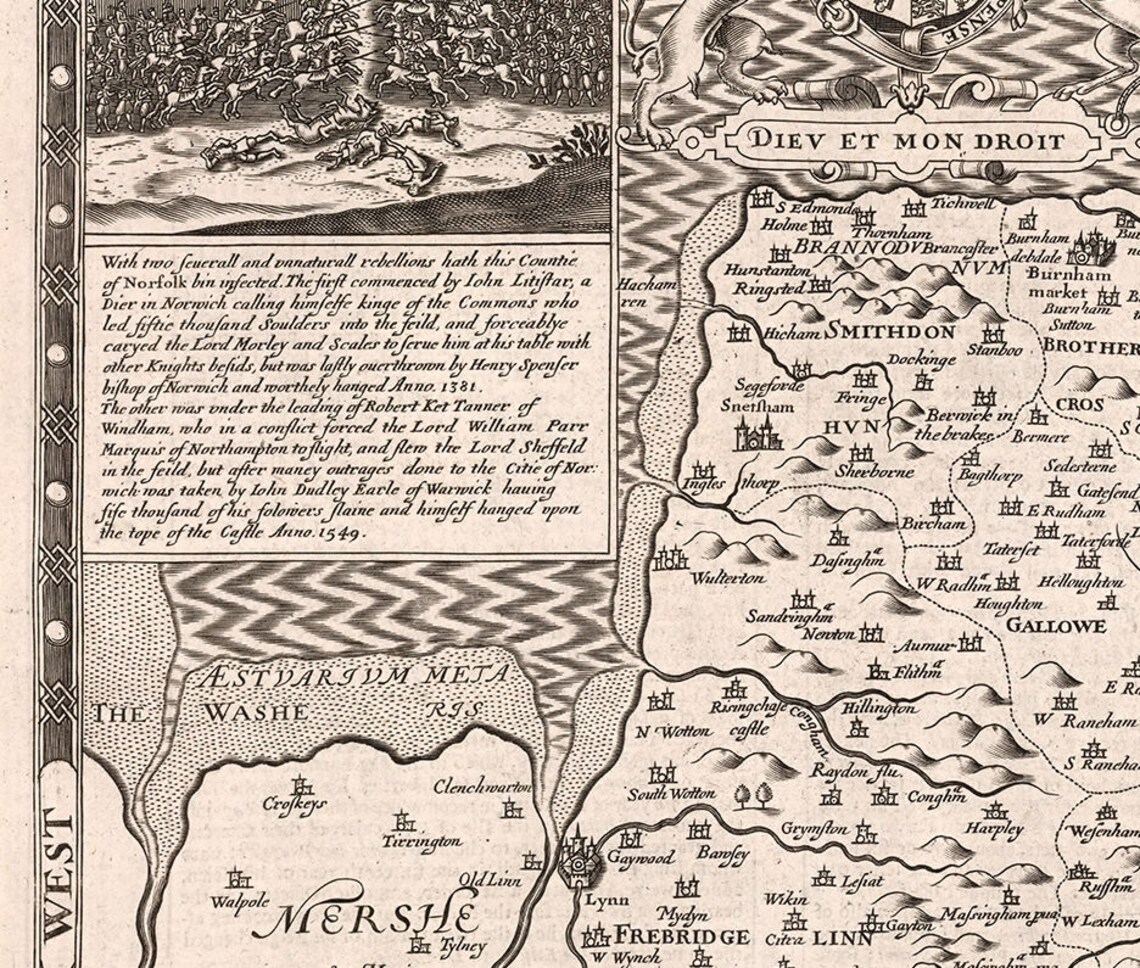 PENSE
DIEV ET MON DROIT
With two seuerall and vnnaturall rebellions hath this Countie
of Norfolk bin infected. The first commenced by Iohn Litistar, a
Dier in Norwich calling himselfe kinge of the Commons who
led fiftie thousand Soulders into the feild, and forceablye
caryed the Lord Morley and Scales to serue him at his table with
other Knights besids, but was lastly ouerthrown by Henry Spenser
bishop of Norwich and worthely hanged Anno. 1381.
The other was vnder the leading of Robert Ket Tanner of
Windham, who in a conflict forced the Lord William Parr
Marquis of Northampton to flight, and slew the Lord Sheffeld
in the feild, but after maney outrages done to the Citie of Nor:
wich was taken by Iohn Dudley Earle of Warwick hauing
fife thousand of his folowers slaine and himself hanged vpon
the tope of the Castle Anno. 1549.
S Edmonds
Tichwell
Holme
Thornham
BRANNODV
NVM
Brancaster
Burnham
debdale
Burnham
market
Burnham
Sutton
Hunstanton
Ringsted
Hacham
ren
Hicham
SMITHDON
Stanboo
BROTHER
Dockinge
Segeforde
Fringe
Snetsham
HVN
Berwick in
the brakes
CROS
Bermere
Sherborne
Ingles thorp
Bagthorp
Sedesterne
Gatesend
E Rudham
Bircham
Taterset
Taterforde
Dasinghm
Wulterton
W Radhm
Helloughton
Houghton
Sandringhm
GALLOWE
Newton
Aumur
Flithm
ÆSTVARIVM META
RIS
THE WASHE
Risingchase
castle
N Wotton
Congham
Hillington
W Raneham
S Raneha
Raydon flu.
Conghm
South Wotton
Clenchwarton
Croskeys
Tirrington
Grymston
Harpley
Wesenham
Gaywood
Bawsey
Old Linn
Walpole
Lesiat
Russhm
Lynn
MERSHE
Mydyn
Wikin
Massingham pua
W Lexham
FREBRIDGE
Citra LINN
Gayton
Tylney
W Wynch
WEST